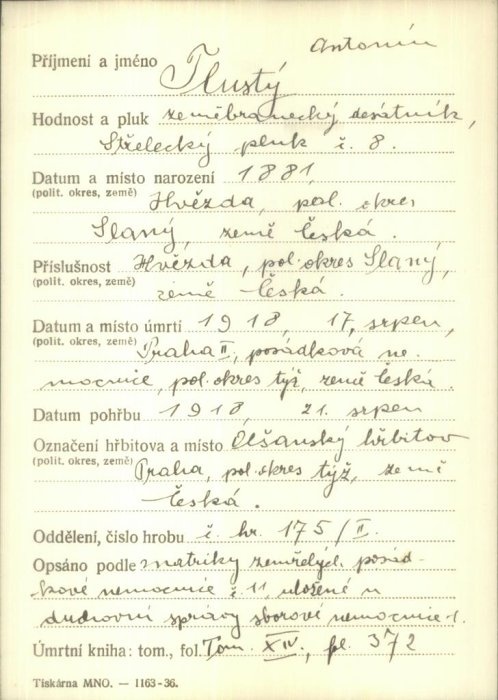 Příjmení a jméno Tlustý Antonín
Hodnost a pluk zeměbranecký desátník,
Střelecký pluk č. 8.
Datum a místo narození 1881,
(polit. okres, země) Hvězda, pol. okres
Slaný, země Česká.
Příslušnost Hvězda, pol. okres Slaný,
(polit. okres, země) země Česká.
Datum a místo úmrtí 1918, 17. srpen,
(polit. okres, země) Praha II, posádková ne
mocnice, pol. okres týž, země Česká.
Datum pohřbu 1918, 21. srpen
Označení hřbitova a místo Olšanský hřbitov
(polit. okres, země) Praha, pol. okres týž, země
Česká.
Oddělení, číslo hrobu č. hr. 175/II.
Opsáno podle matriky zemřelých posád-
kové nemocnice č. 11, uložené u
duchovní správy sborové nemocnice 1.
Úmrtní kniha: tom., fol. Tom. XIV, fol. 372
Tiskárna MNO. — 1163-36.